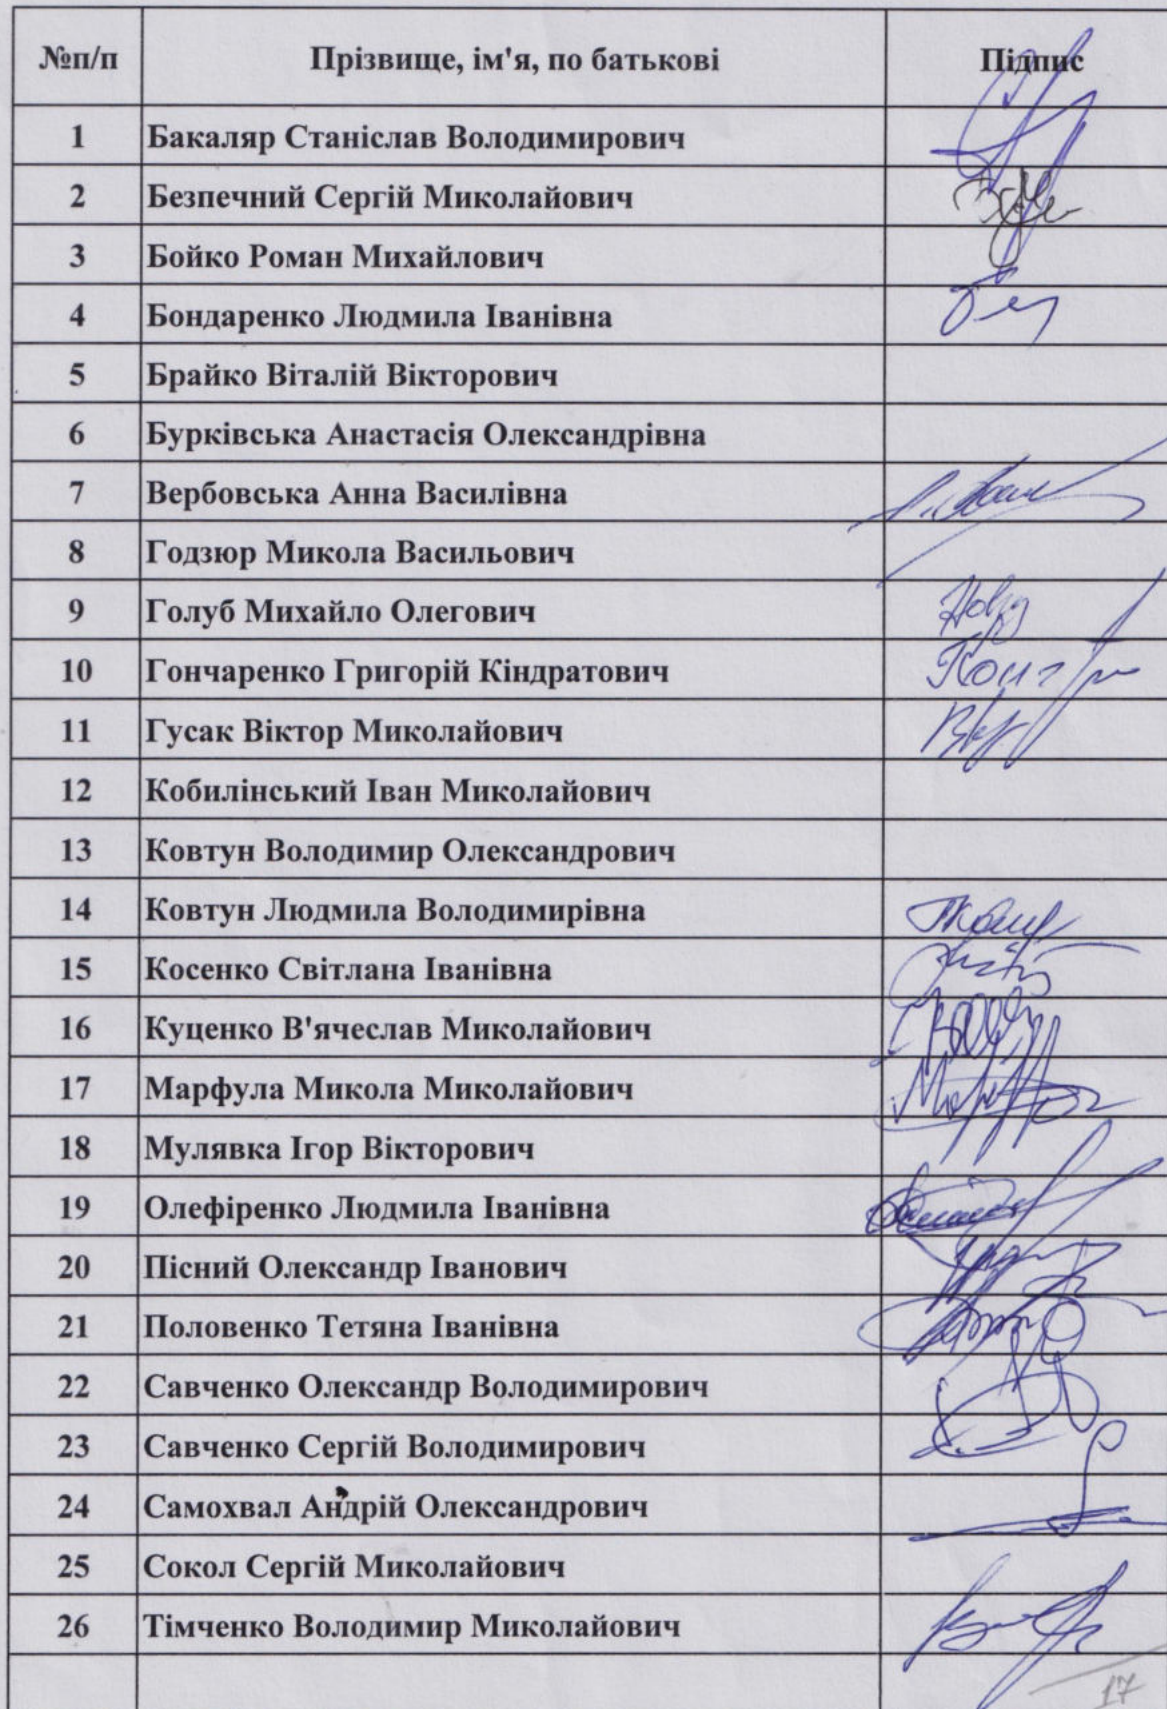 №п/п Прізвище, ім'я, по батькові Підпис
1 Бакаляр Станіслав Володимирович
2 Безпечний Сергій Миколайович
3 Бойко Роман Михайлович
4 Бондаренко Людмила Іванівна
5 Брайко Віталій Вікторович
6 Бурківська Анастасія Олександрівна
7 Вербовська Анна Василівна
8 Годзюр Микола Васильович
9 Голуб Михайло Олегович
10 Гончаренко Григорій Кіндратович
11 Гусак Віктор Миколайович
12 Кобилінський Іван Миколайович
13 Ковтун Володимир Олександрович
14 Ковтун Людмила Володимирівна
15 Косенко Світлана Іванівна
16 Куценко В'ячеслав Миколайович
17 Марфула Микола Миколайович
18 Мулявка Ігор Вікторович
19 Олефіренко Людмила Іванівна
20 Пісний Олександр Іванович
21 Половенко Тетяна Іванівна
22 Савченко Олександр Володимирович
23 Савченко Сергій Володимирович
24 Самохвал Андрій Олександрович
25 Сокол Сергій Миколайович
26 Тімченко Володимир Миколайович
17